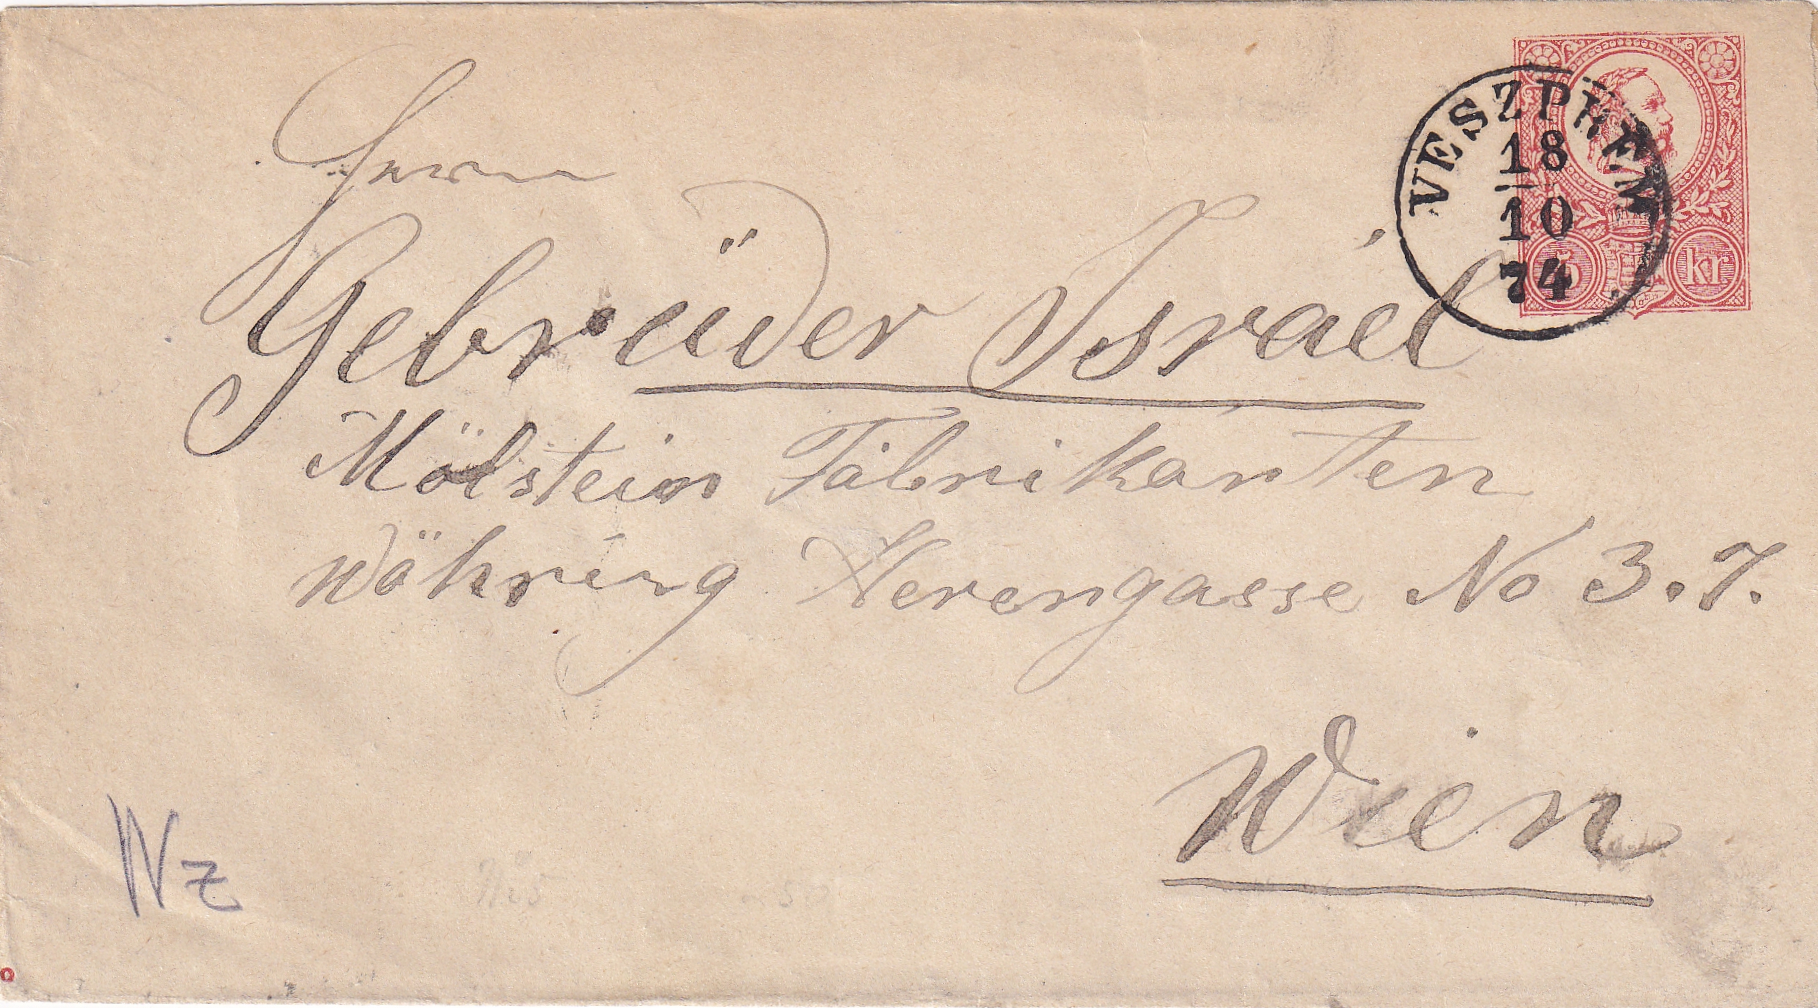 VESZPREM
18
10
74
5 kr
Herrn
Gebrüder Israël
Mölstein Fabrikanten
Währing Herengasse No 3.7.
Wien
Wz